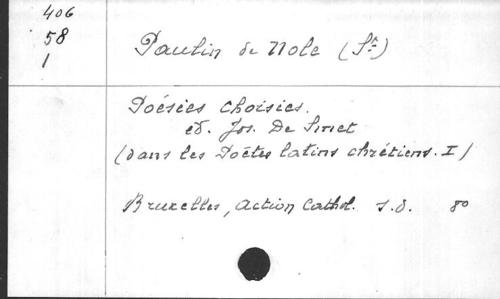 406
58
1
Paulin de Nole (St)
Poésies choisies.
ed. Jos. De Smet
(dans les Poètes latins chrétiens. I)
Bruxelles, Action Cathol. s.d. 8º